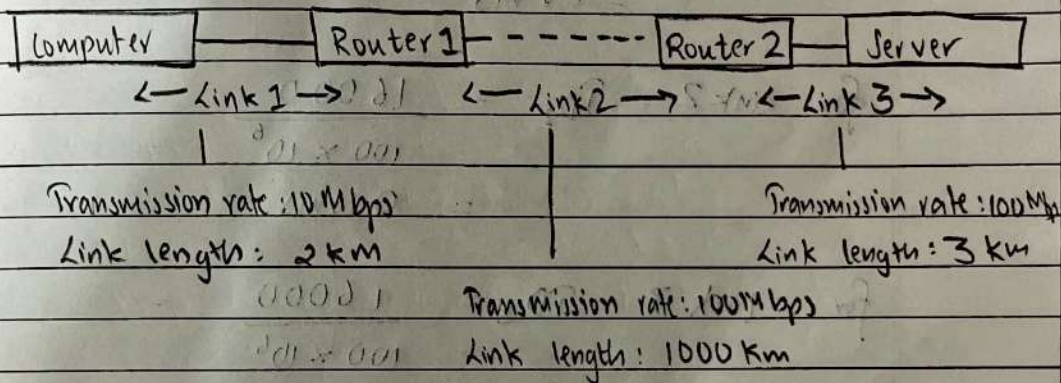 Computer Router 1 Router 2 Server
<- Link 1 -> <- Link 2 -> <- Link 3 ->
Transmission rate: 10 Mbps Transmission rate: 100 Mb
Link length: 2 km Link length: 3 km
Transmission rate: 100 Mbps
Link length: 1000 Km